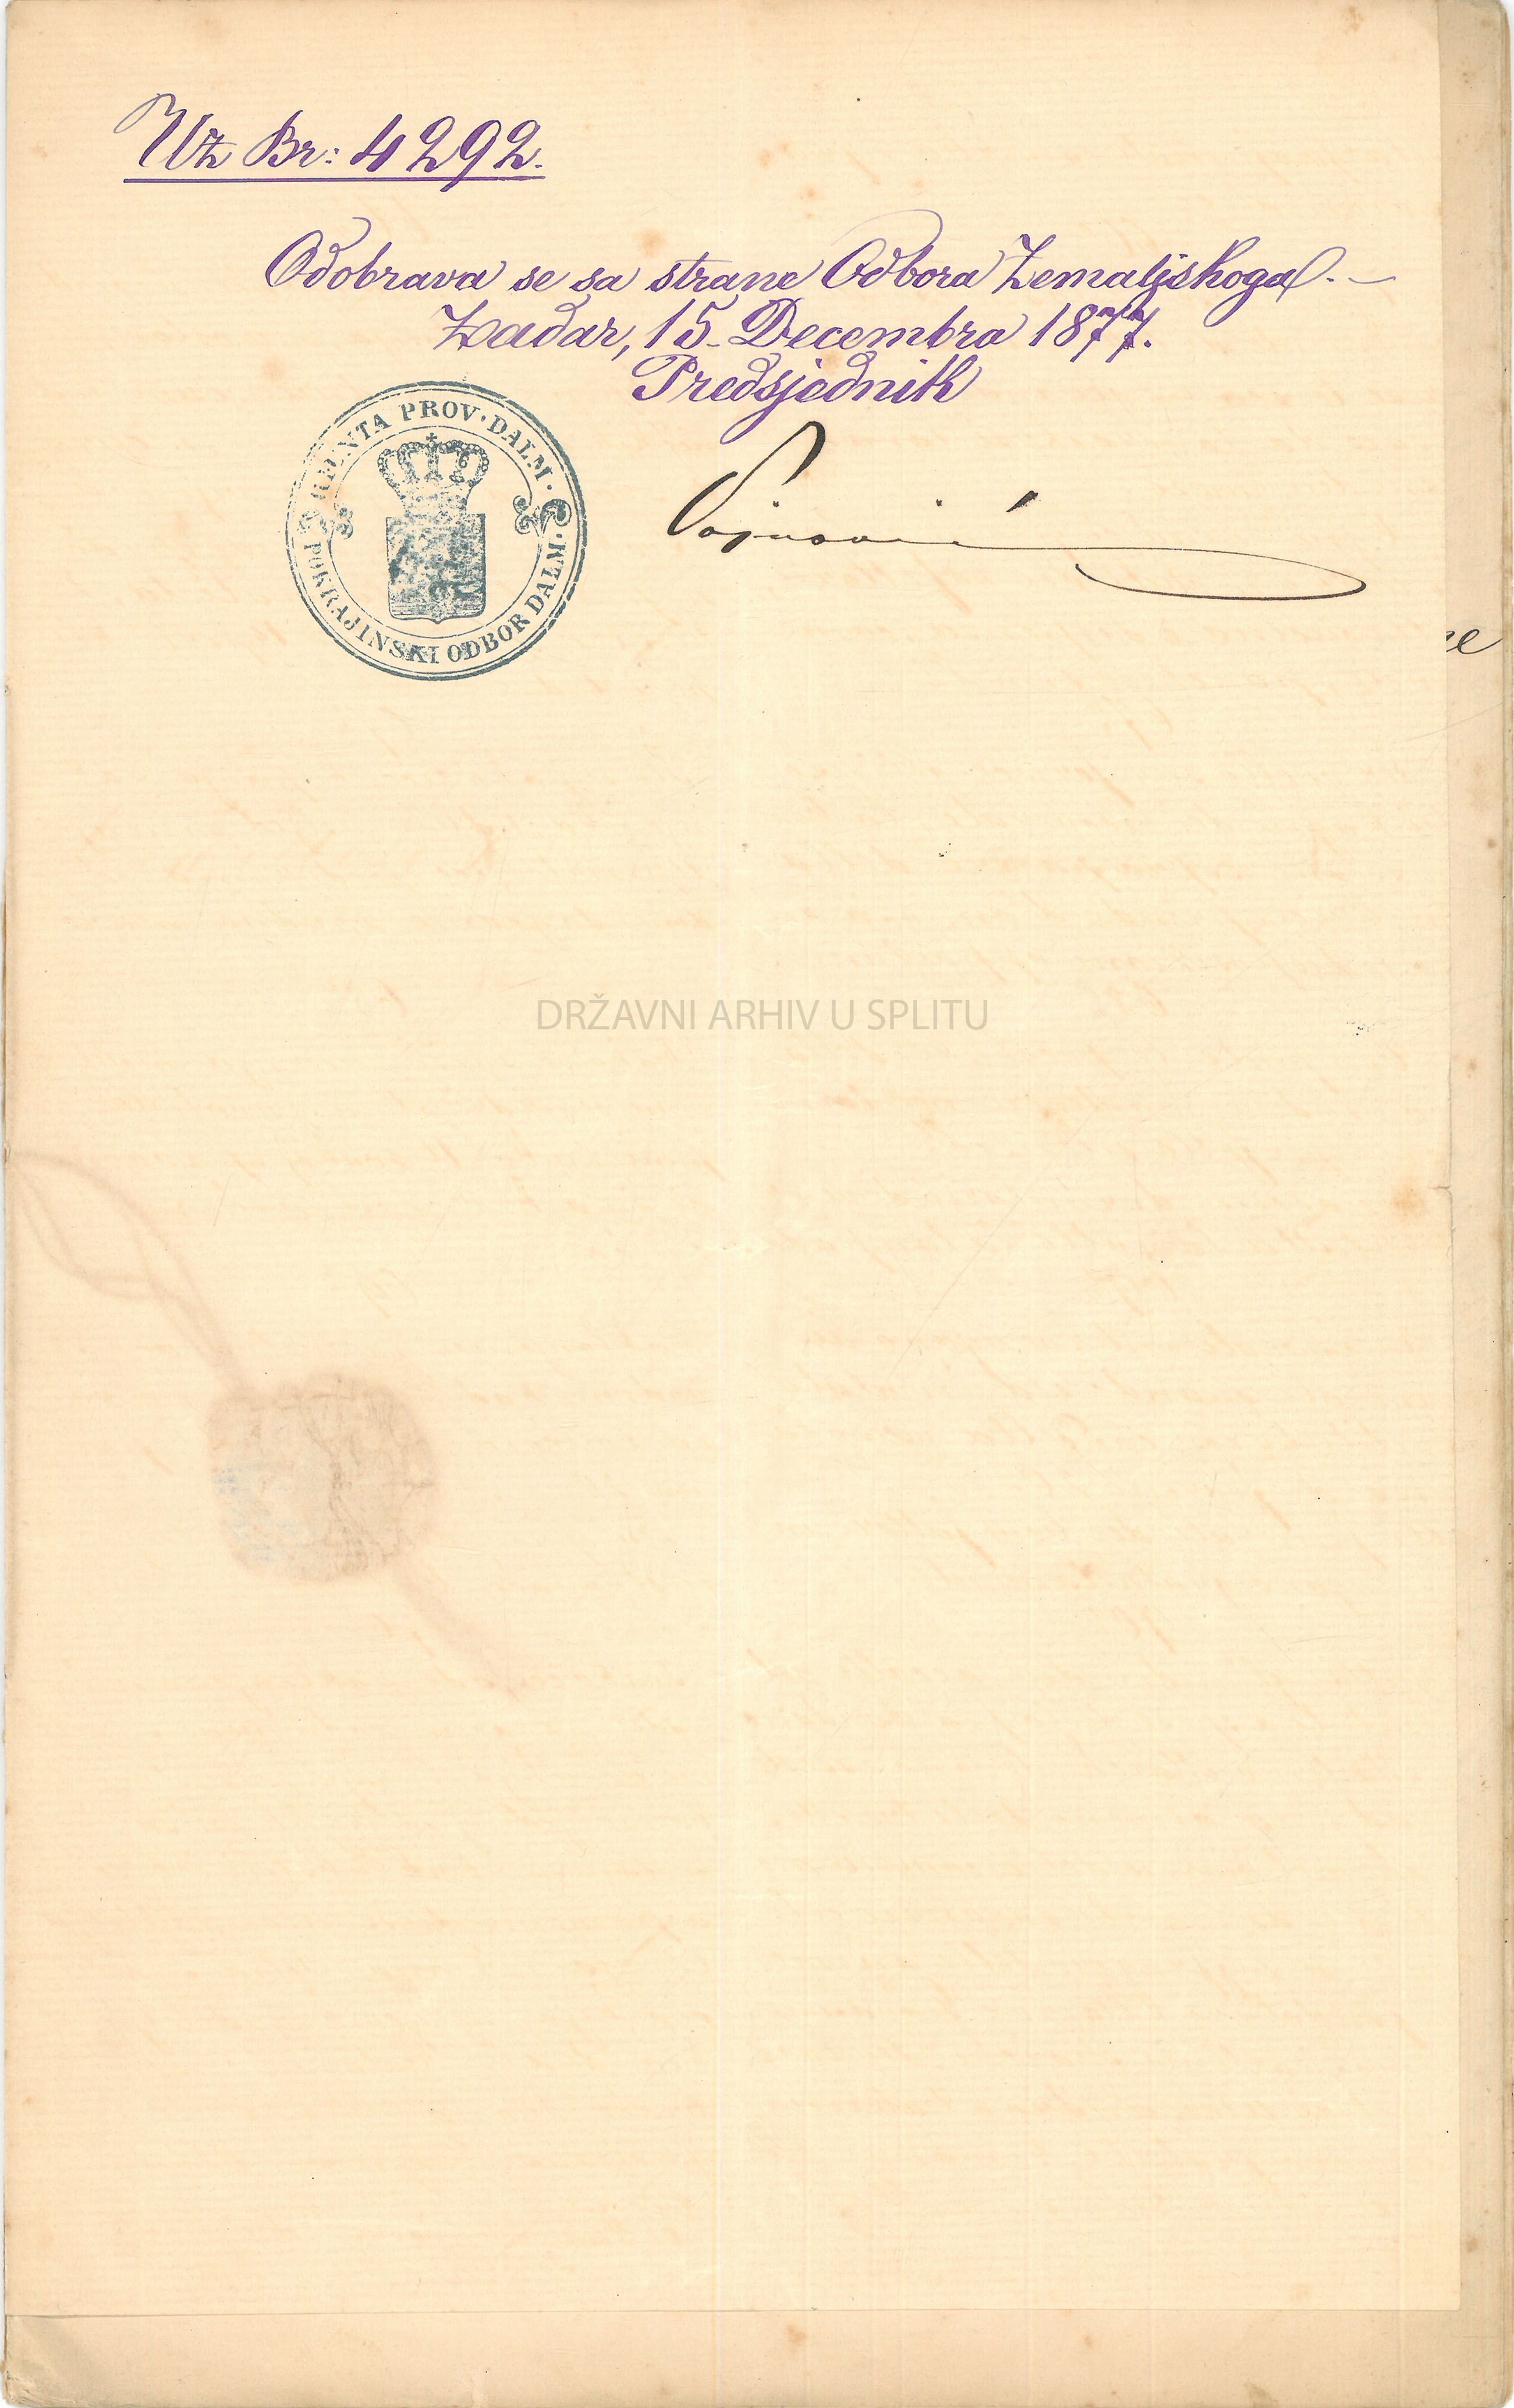 Uz Br: 4292.
Odobrava se sa strane Odbora Zemaljskoga. —
Zadar, 15. Decembra 1877.
Predsjednik
PROV. DALM.
POKRAJINSKI ODBOR DALM.
Vojnović
DRŽAVNI ARHIV U SPLITU